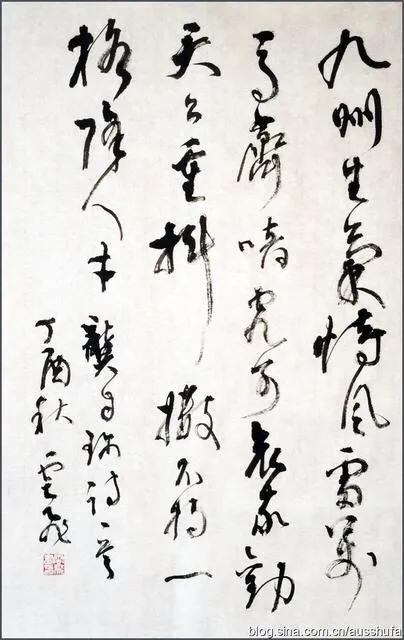 九州生氣恃風雷萬
馬齊喑究可哀我勸
天公重抖擻不拘一
格降人才 龔自珍詩一首
丁酉秋 雲飛
blog.sina.com.cn/ausshufa